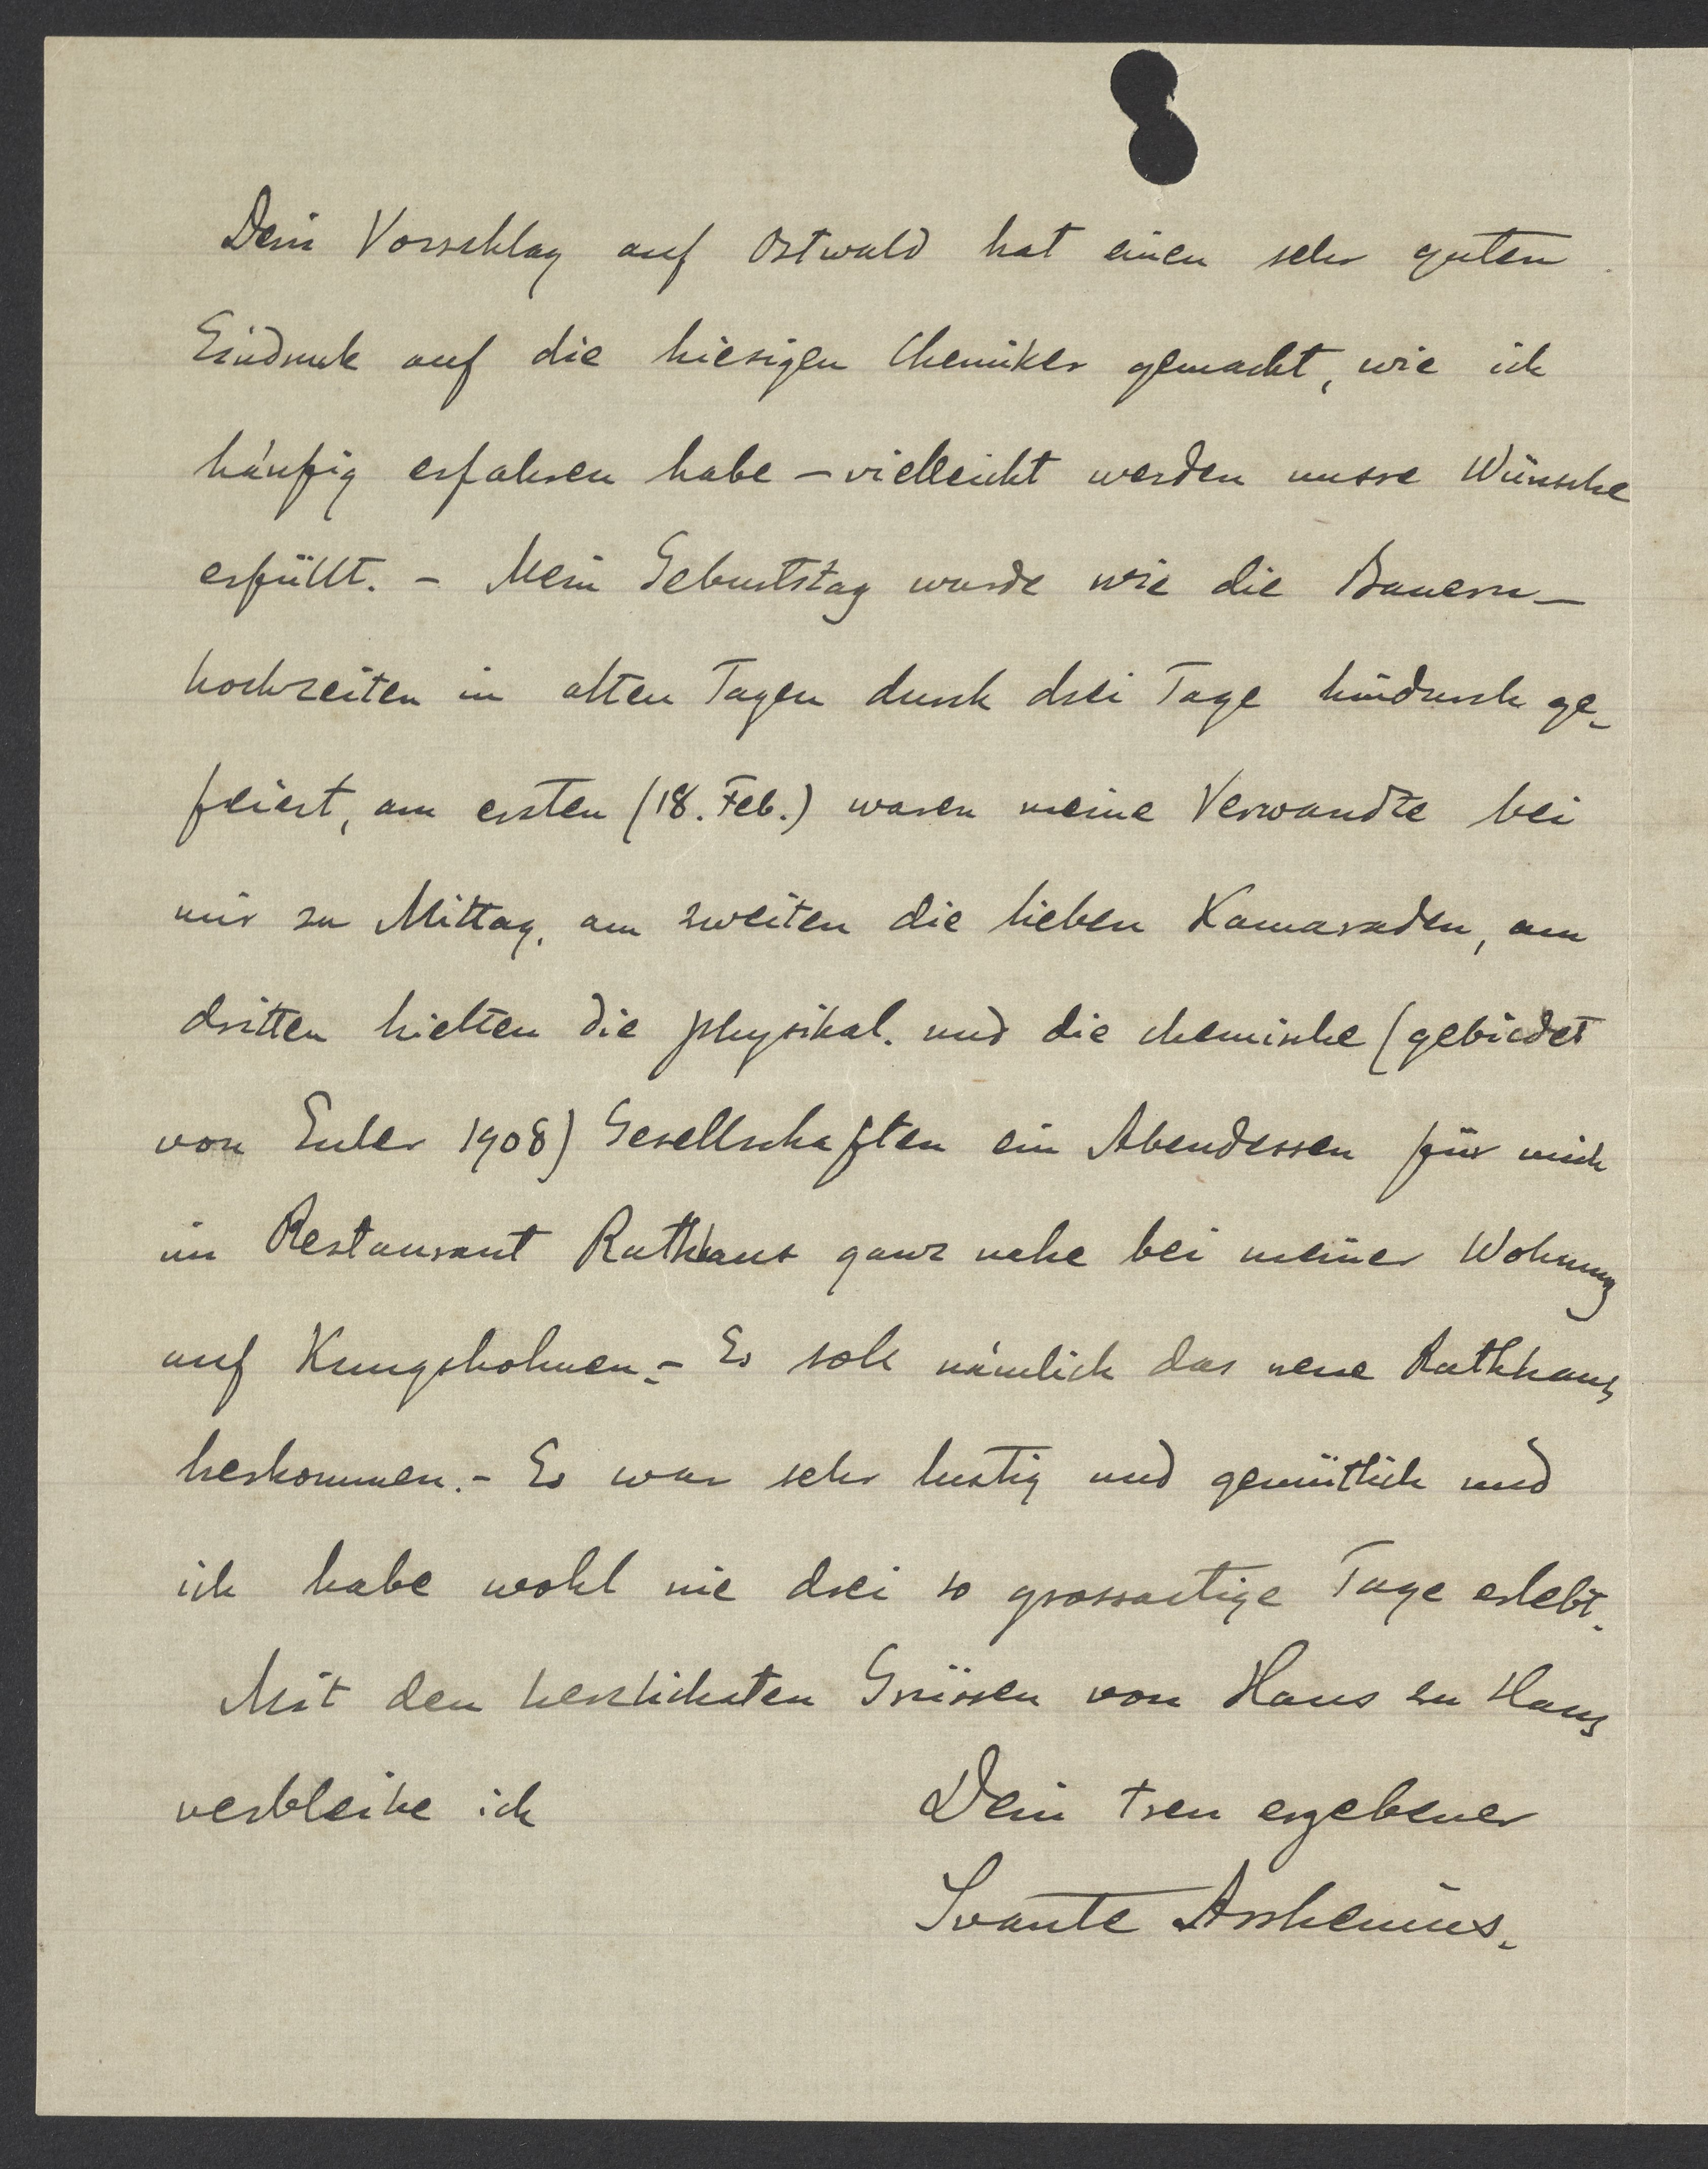 Dein Vorschlag auf Ostwald hat einen sehr guten
Eindruck auf die hiesigen Chemiker gemacht, wie ich
häufig erfahren habe – vielleicht werden unsre Wünsche
erfüllt. – Mein Geburtstag wurde wie die Bauern-
hochzeiten in alten Tagen durch drei Tage hindurch ge-
feiert, am ersten (18. Feb.) waren meine Verwandte bei
mir zu Mittag, am zweiten die lieben Kamaraden, am
dritten hielten die physikal. und die chemische (gebildet
von Euler 1908) Gesellschaften ein Abendessen für mich
im Restaurant Rathhaus ganz nahe bei meiner Wohnung
auf Kungsholmen. – Es soll nämlich das neue Rathhaus
herkommen. – Es war sehr lustig und gemütlich und
ich habe wohl nie drei so grossartige Tage erlebt.
Mit den herzlichsten Grüssen von Haus zu Haus
verbleibe ich Dein treu ergebener
Svante Arrhenius.